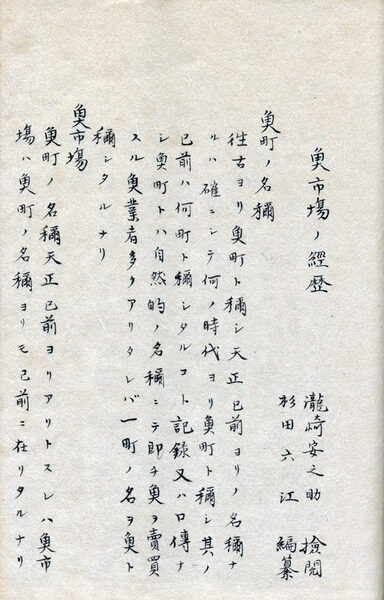 魚市場ノ經歴
瀧崎安之助 撿閲
杉田六江 編纂
魚町ノ名稱
徃古ヨリ魚町ト稱シ天正已前ヨリノ名稱ナ
ルハ確ニシテ何ノ時代ヨリ魚町ト稱シ其ノ
已前ハ何町ト稱シタルコト記録又ハ口傳ナ
シ魚町トハ自然的ノ名稱ニテ即チ魚ヲ賣買
スル魚業者多クアリタレバ一町ノ名ヲ魚ト
稱シタルナリ
魚市場
魚町ノ名稱天正已前ヨリアリトスレハ魚市
場ハ魚町ノ名稱ヨリモ已前ニ在リタルナリ